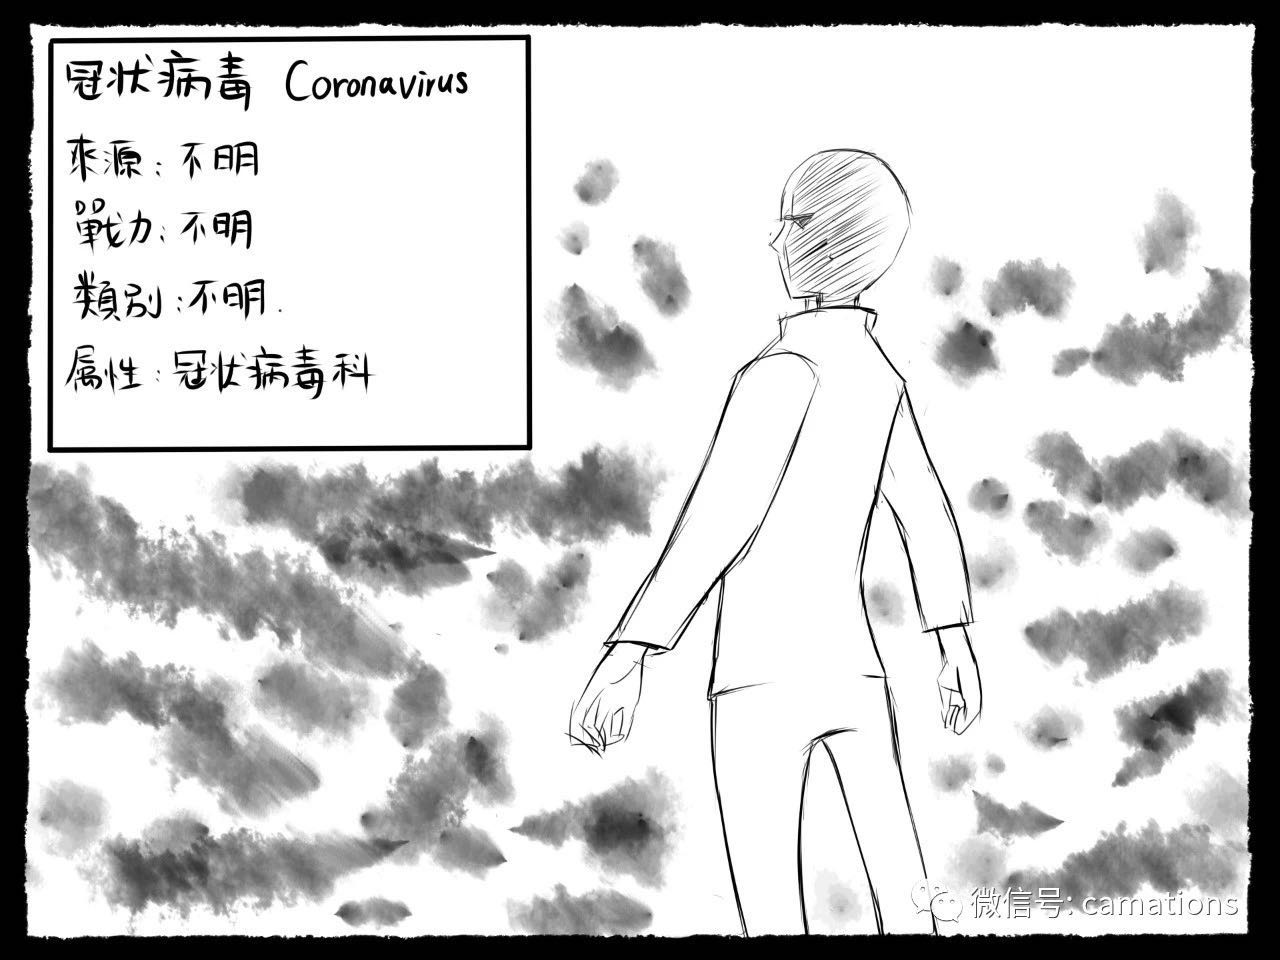 冠状病毒 Coronavirus
來源：不明
戰力：不明
類別：不明.
属性：冠状病毒科
微信号: camations